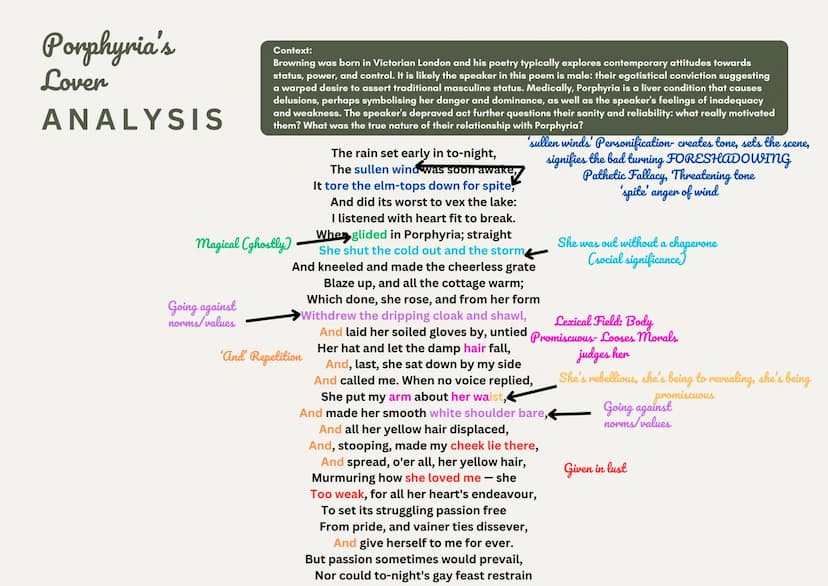 Porphyria's
Lover
ANALYSIS
Context:
Browning was born in Victorian London and his poetry typically explores contemporary attitudes towards
status, power, and control. It is likely the speaker in this poem is male: their egotistical conviction suggesting
a warped desire to assert traditional masculine status. Medically, Porphyria is a liver condition that causes
delusions, perhaps symbolising her danger and dominance, as well as the speaker's feelings of inadequacy
and weakness. The speaker's depraved act further questions their sanity and reliability: what really motivated
them? What was the true nature of their relationship with Porphyria?
'sullen winds' Personification- creates tone, sets the scene,
signifies the bad turning FORESHADOWING
Pathetic Fallacy, Threatening tone
'spite' anger of wind
The rain set early in to-night,
The sullen wind was soon awake,
It tore the elm-tops down for spite,
And did its worst to vex the lake:
I listened with heart fit to break.
When glided in Porphyria; straight
Magical (Ghostly)
She shut the cold out and the storm,
She was out without a chaperone
(social significance)
And kneeled and made the cheerless grate
Blaze up, and all the cottage warm;
Which done, she rose, and from her form
Going against
norms/values
Withdrew the dripping cloak and shawl,
And laid her soiled gloves by, untied
Lexical Field: Body
Promiscuous- Looses Morals
judges her
Her hat and let the damp hair fall,
'And' Repetition
And, last, she sat down by my side
And called me. When no voice replied,
She's rebellious, she's being to revealing, she's being
promiscuous
She put my arm about her waist,
And made her smooth white shoulder bare,
Going against
norms/values
And all her yellow hair displaced,
And, stooping, made my cheek lie there,
And spread, o'er all, her yellow hair,
Given in lust
Murmuring how she loved me — she
Too weak, for all her heart's endeavour,
To set its struggling passion free
From pride, and vainer ties dissever,
And give herself to me for ever.
But passion sometimes would prevail,
Nor could to-night's gay feast restrain